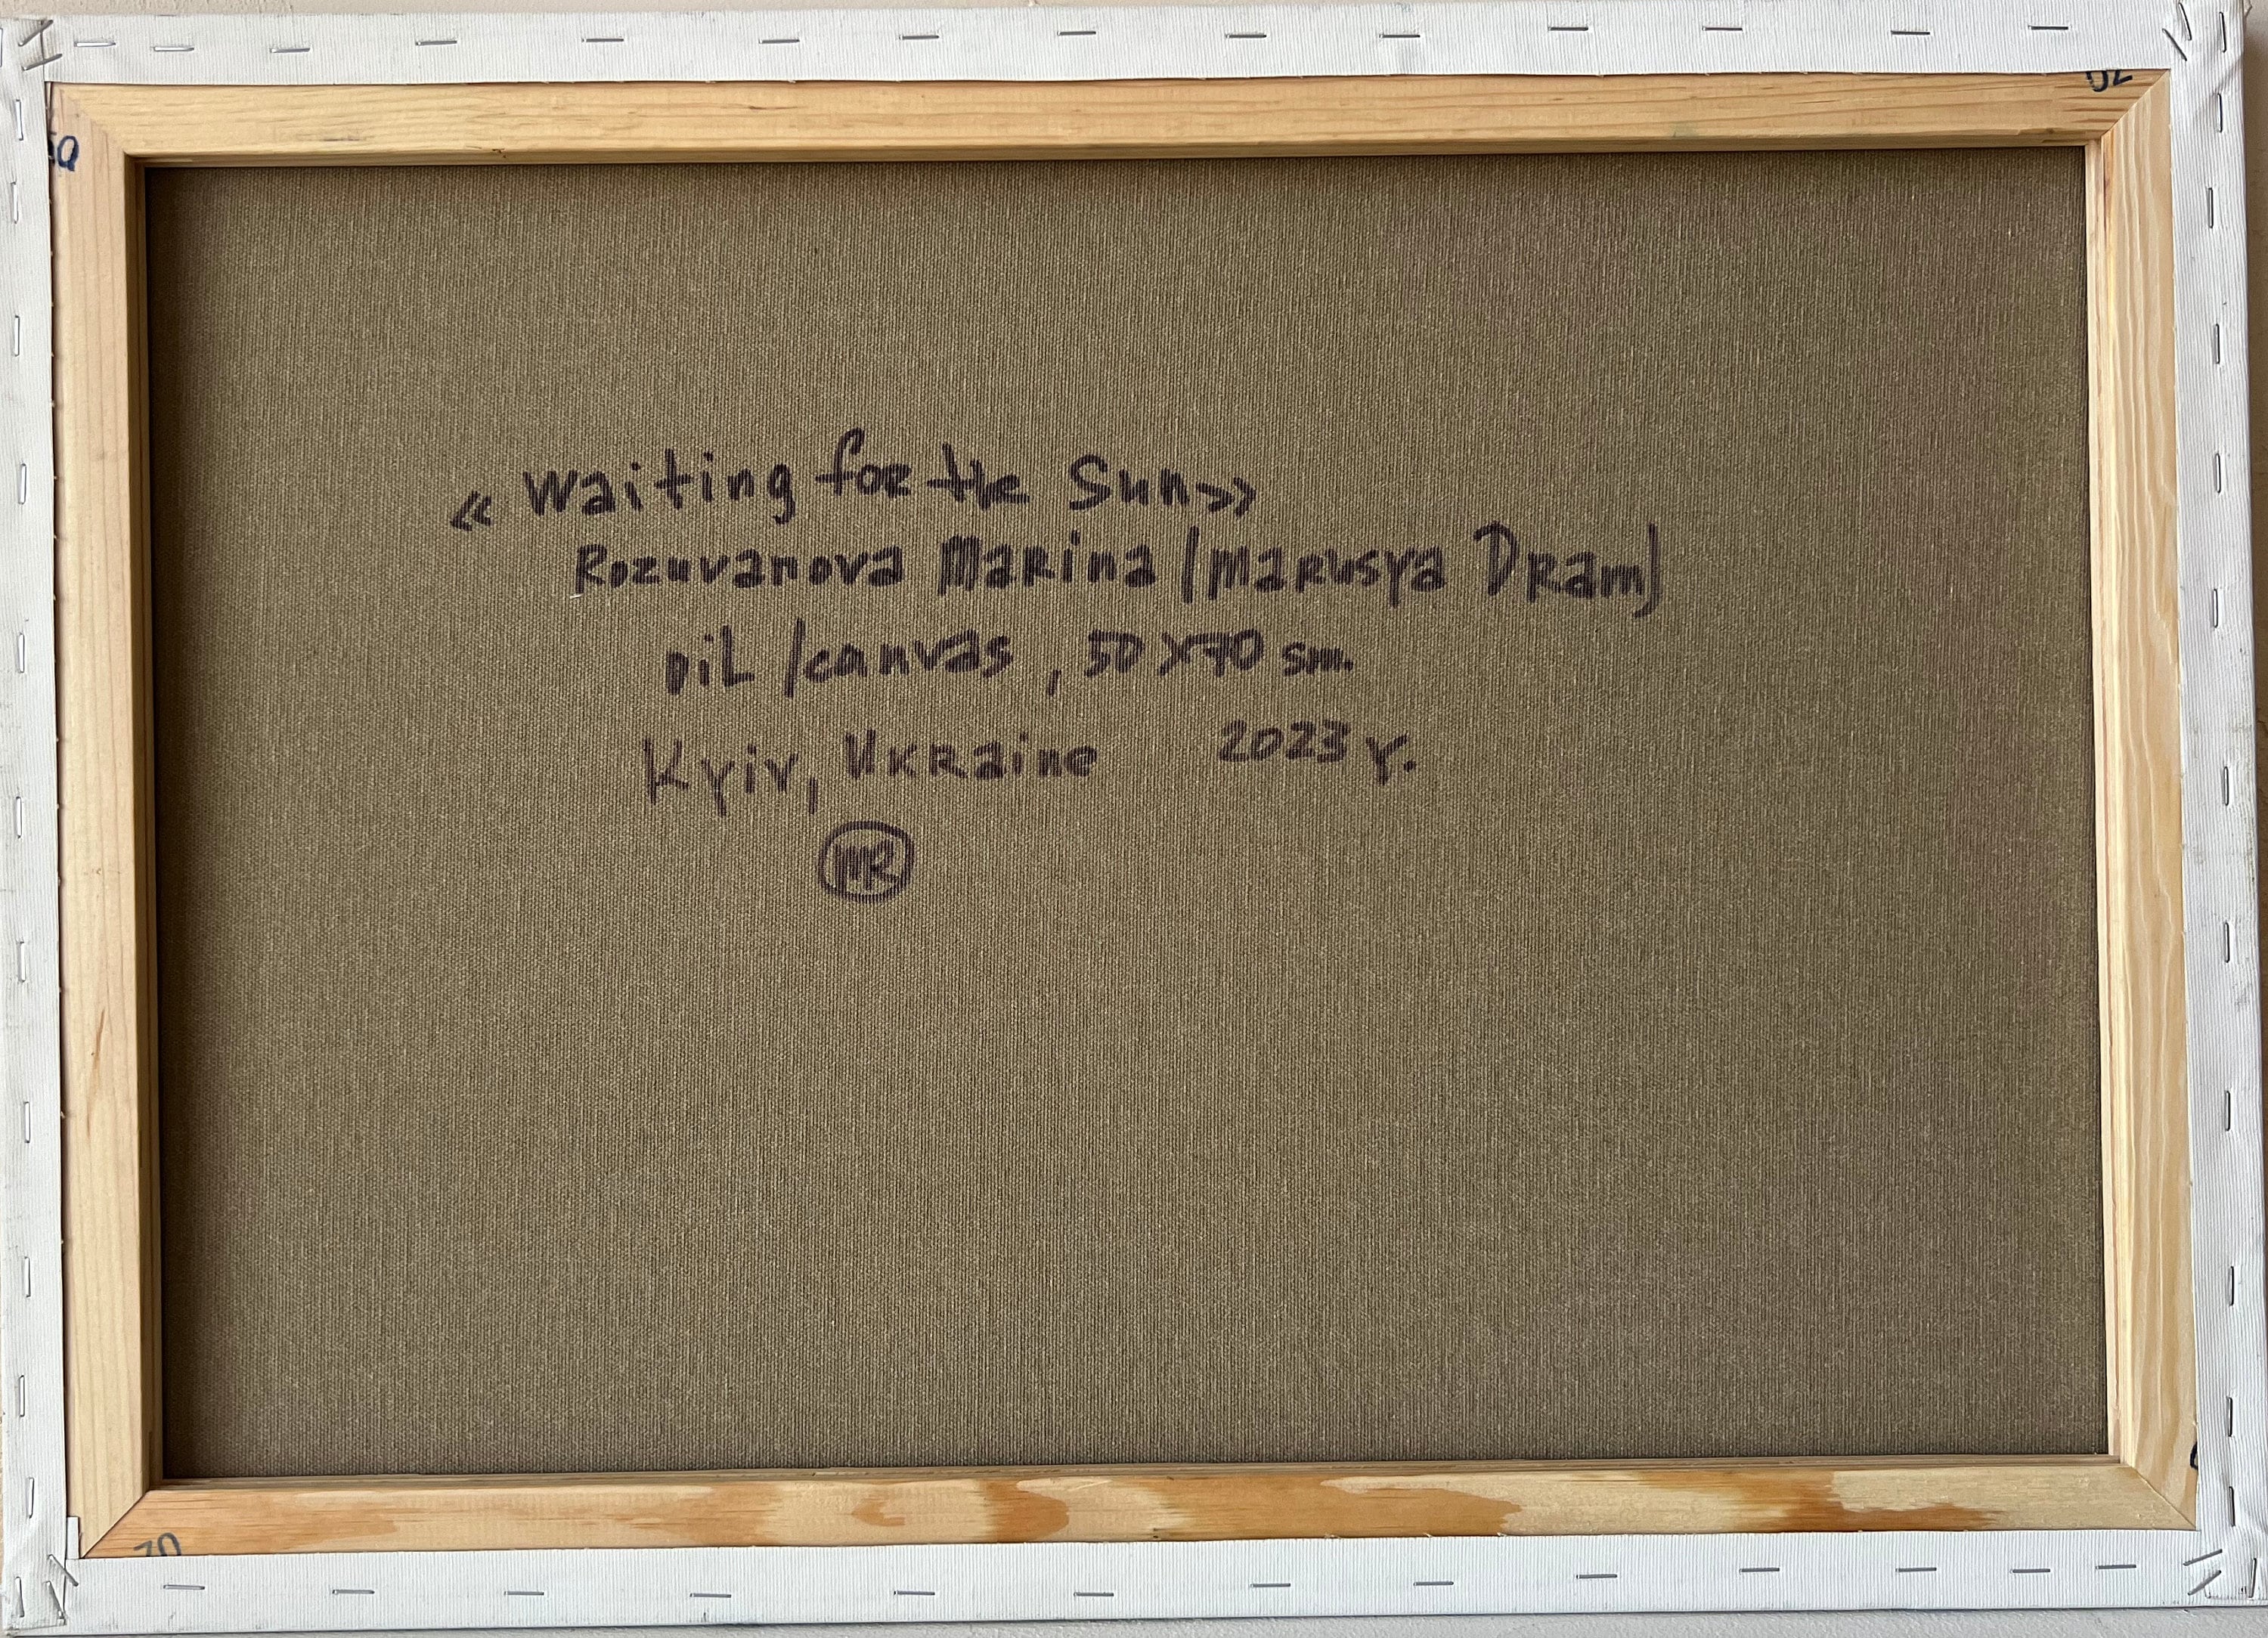 « Waiting for the Sun»
Rozuvanova Marina (Marusya Dram)
oil/canvas, 50x70 sm.
Kyiv, Ukraine 2023 y.
MR
50
70
70